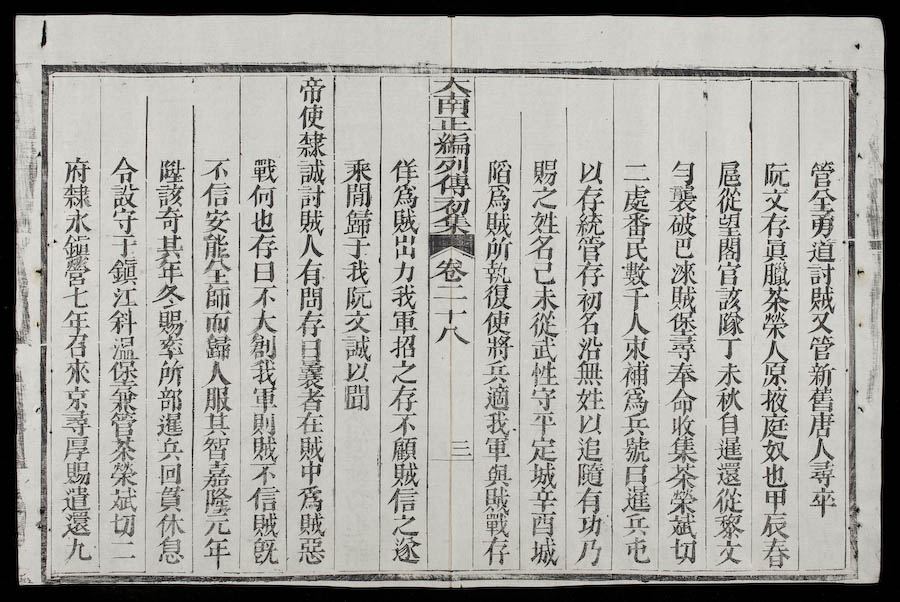 管全勇道討賊又管新舊唐人尋卒
阮文存眞臘茶榮人原掖庭奴也甲辰春
扈從望閣官該隊丁未秋自暹還從黎文
勻襲破巴淶賊堡尋奉命收集茶榮斌切
二處番民數千人束補爲兵號曰暹兵屯
以存統管存初名沿無姓以追隨有功乃
賜之姓名己未從武性守平定城辛酉城
陷爲賊所執復使將兵適我軍與賊戰存
大南正編列傳初集 卷二十八 三
佯爲賊出力我軍招之存不顧賊信之遂
乘閒歸于我阮文誠以聞
帝使隸誠討賊人有問存曰曩者在賊中爲賊惡
戰何也存曰不大創我軍則賊不信賊旣
不信安能全師而歸人服其智嘉隆元年
陞該奇其年冬賜率所部暹兵回貫休息
令設守于鎭江斜溫堡兼管茶榮斌切二
府隸永鎭營七年召來京尋厚賜遣還九